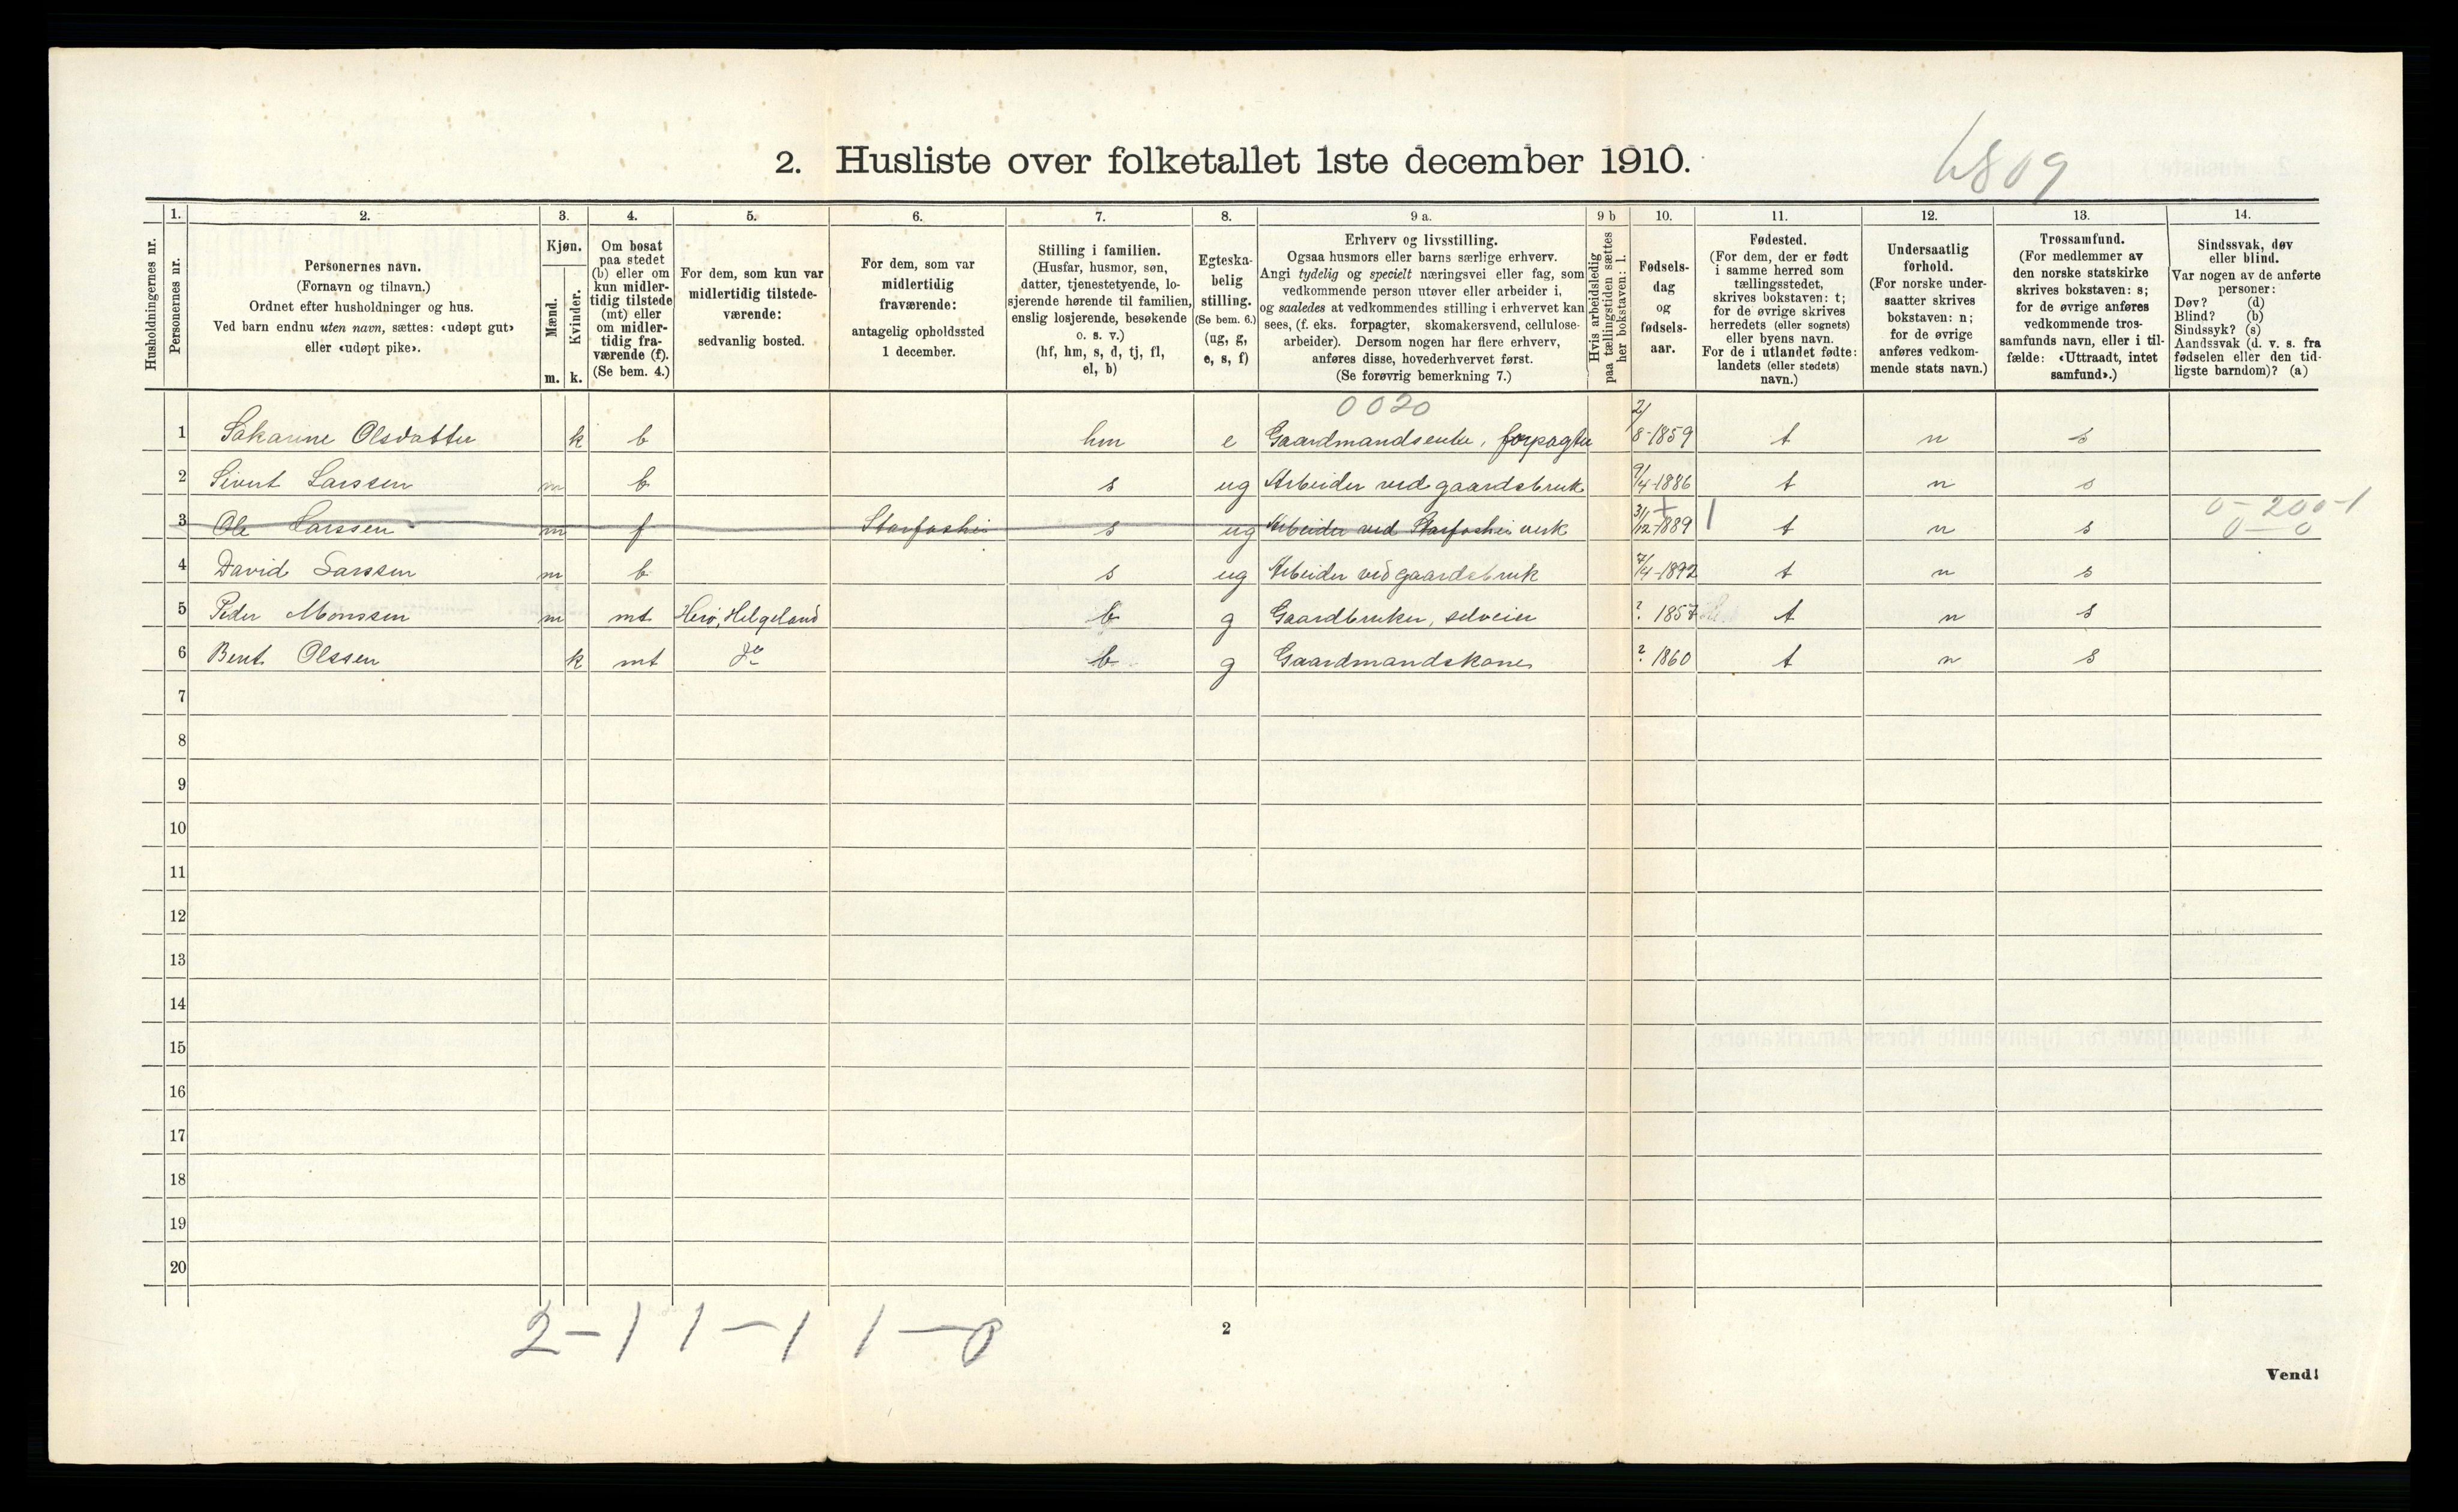 6809
2. Husliste over folketallet 1ste december 1910.
Husholdningernes nr.
1. Personernes nr.
2. Personernes navn. (Fornavn og tilnavn.) Ordnet efter husholdninger og hus. Ved barn endnu uten navn, sættes: «udøpt gut» eller «udøpt pike».
3. Kjøn. Mænd. m. Kvinder. k.
4. Om bosat paa stedet (b) eller om kun midlertidig tilstede (mt) eller om midlertidig fraværende (f). (Se bem. 4.)
5. For dem, som kun var midlertidig tilstedeværende: sedvanlig bosted.
6. For dem, som var midlertidig fraværende: antagelig opholdssted 1 december.
7. Stilling i familien. (Husfar, husmor, søn, datter, tjenestetyende, losjerende hørende til familien, enslig losjerende, besøkende o. s. v.) (hf, hm, s, d, tj, fl, el, b)
8. Egteskabelig stilling. (Se bem. 6.) (ug, g, e, s, f)
9 a. Erhverv og livsstilling. Ogsaa husmors eller barns særlige erhverv. Angi tydelig og specielt næringsvei eller fag, som vedkommende person utøver eller arbeider i, og saaledes at vedkommendes stilling i erhvervet kan sees, (f. eks. forpagter, skomakersvend, cellulosearbeider). Dersom nogen har flere erhverv, anføres disse, hovederhvervet først. (Se forøvrig bemerkning 7.)
9 b Hvis arbeidsledig paa tællingstiden sættes her bokstaven: l.
10. Fødselsdag og fødselsaar.
11. Fødested. (For dem, der er født i samme herred som tællingsstedet, skrives bokstaven: t; for de øvrige skrives herredets (eller sognets) eller byens navn. For de i utlandet fødte: landets (eller stedets) navn.)
12. Undersaatlig forhold. (For norske undersaatter skrives bokstaven: n; for de øvrige anføres vedkommende stats navn.)
13. Trossamfund. (For medlemmer av den norske statskirke skrives bokstaven: s; for de øvrige anføres vedkommende trossamfunds navn, eller i tilfælde: «Uttraadt, intet samfund».)
14. Sindssvak, døv eller blind. Var nogen av de anførte personer: Døv? (d) Blind? (b) Sindssyk? (s) Aandssvak (d. v. s. fra fødselen eller den tidligste barndom)? (a)
0020
1 Sakarine Olsdatter k b hm e Gaardmandsenke, forpagter 2/8-1859 t n s
2 Sivert Larssen m b s ug Arbeider ved gaardsbruk 9/4-1886 t n s
3 Ole Larssen m f s ug Arbeider ved verk 31/12-1889 t n s 0-200-1 0-0
4 David Larssen m b s ug Arbeider ved gaardsbruk 7/4-1892 t n s
5 Peder Monssen m mt Herø, Helgeland b g Gaardbruker, selveier ? 1857 t n s
6 Berit Olssen k mt Do b g Gaardmandskone ? 1860 t n s
7
8
9
10
11
12
13
14
15
16
17
18
19
20
2-1 1-1 1-0
2
Vend!